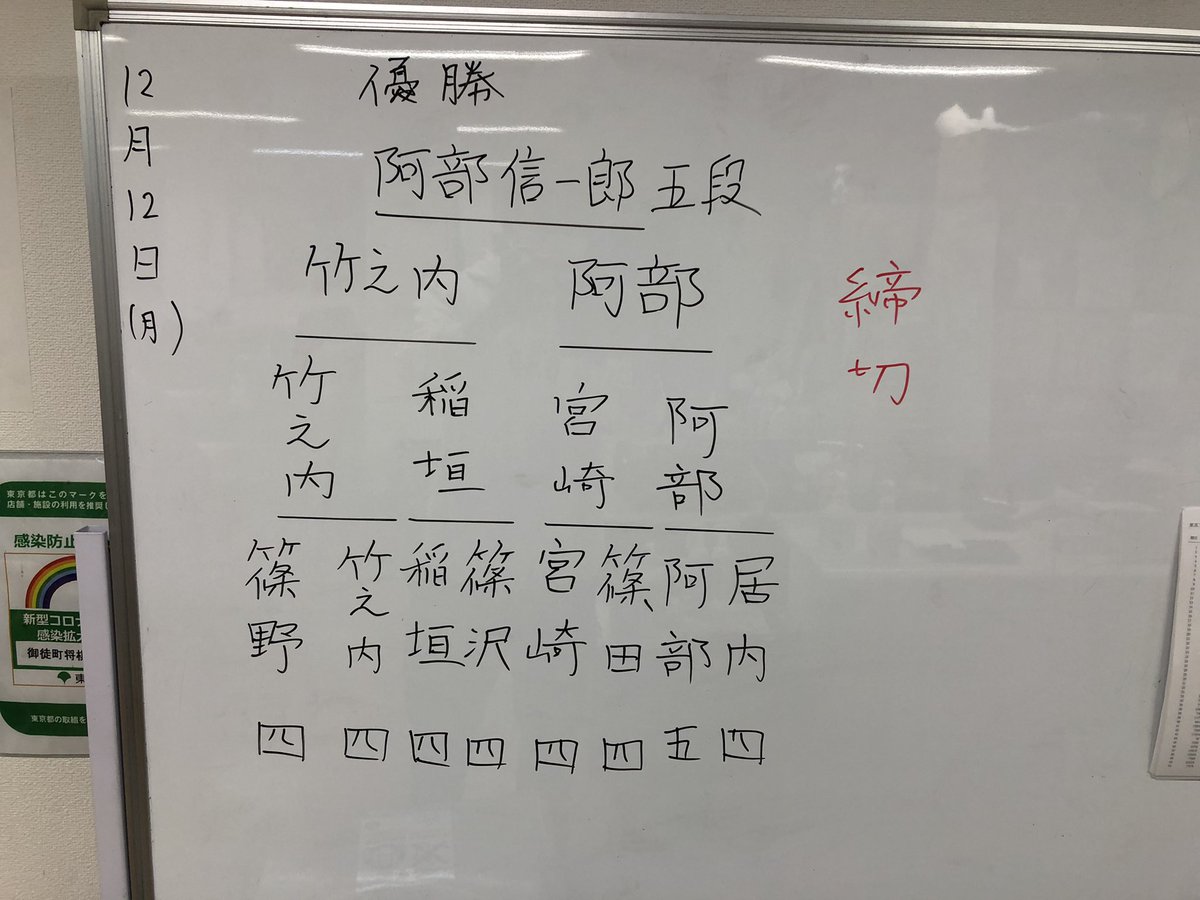 12月12日(月)
優勝
阿部信一郎五段
竹之内 阿部
竹之内 稲垣 宮崎 阿部
篠野 竹之内 稲垣 篠沢 宮崎 篠田 阿部 居内
四 四 四 四 四 四 五 四
締切
東京都はこのマークを
店舗・施設の利用を推奨し
感染防止
新型コロナ
感染拡大
御徒町将棋
東
東京都の取組を